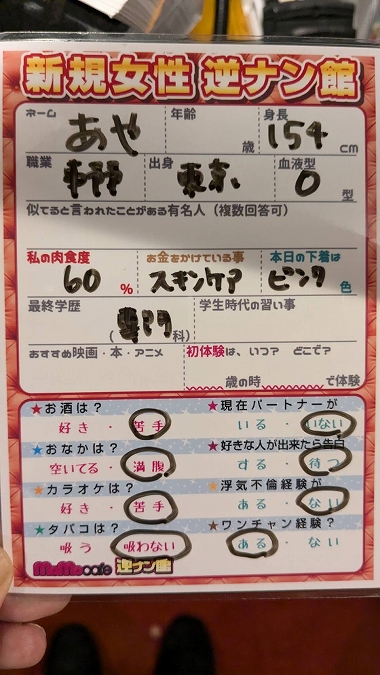 新規女性 逆ナン館
ネーム あや 年齢 歳 身長 154 cm
職業 出身 東京 血液型 O 型
似てると言われたことがある有名人（複数回答可）
私の肉食度 60 % お金をかけている事 スキンケア 本日の下着は ピンク 色
最終学歴 (専門 科) 学生時代の習い事
おすすめ映画・本・アニメ 初体験は、いつ？ どこで？
歳の時 で体験
★お酒は？ ★現在パートナーが
好き・苦手 いる・いない
★おなかは？ ★好きな人が出来たら告白
空いてる・満腹 する・待つ
★カラオケは？ ★浮気不倫経験が
好き・苦手 ある・ない
★タバコは？ ★ワンチャン経験？
吸う・吸わない ある・ない
MoMocafe 逆ナン館